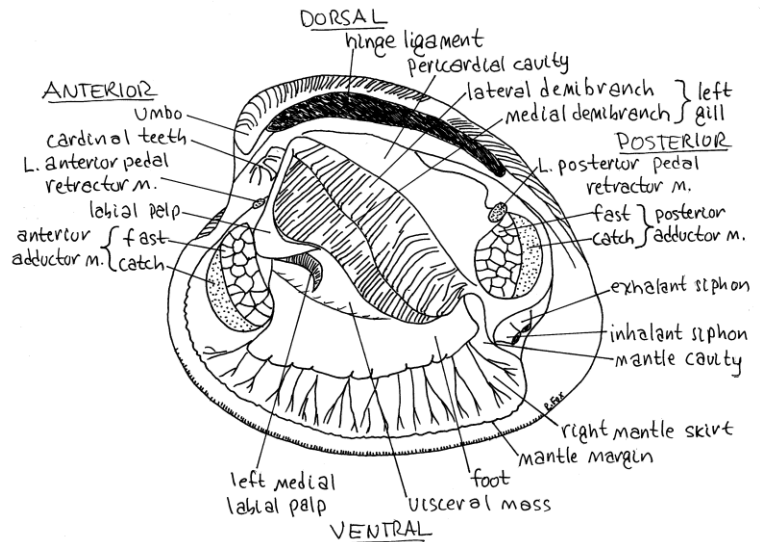 DORSAL
hinge ligament
pericardial cavity
lateral demibranch
medial demibranch
left
gill
ANTERIOR
umbo
cardinal teeth
L. anterior pedal
retractor m.
labial palp
anterior
adductor m.
fast
catch
POSTERIOR
L. posterior pedal
retractor m.
fast
catch
posterior
adductor m.
exhalant siphon
inhalant siphon
mantle cavity
R.Fox
right mantle skirt
mantle margin
foot
visceral mass
left medial
labial palp
VENTRAL